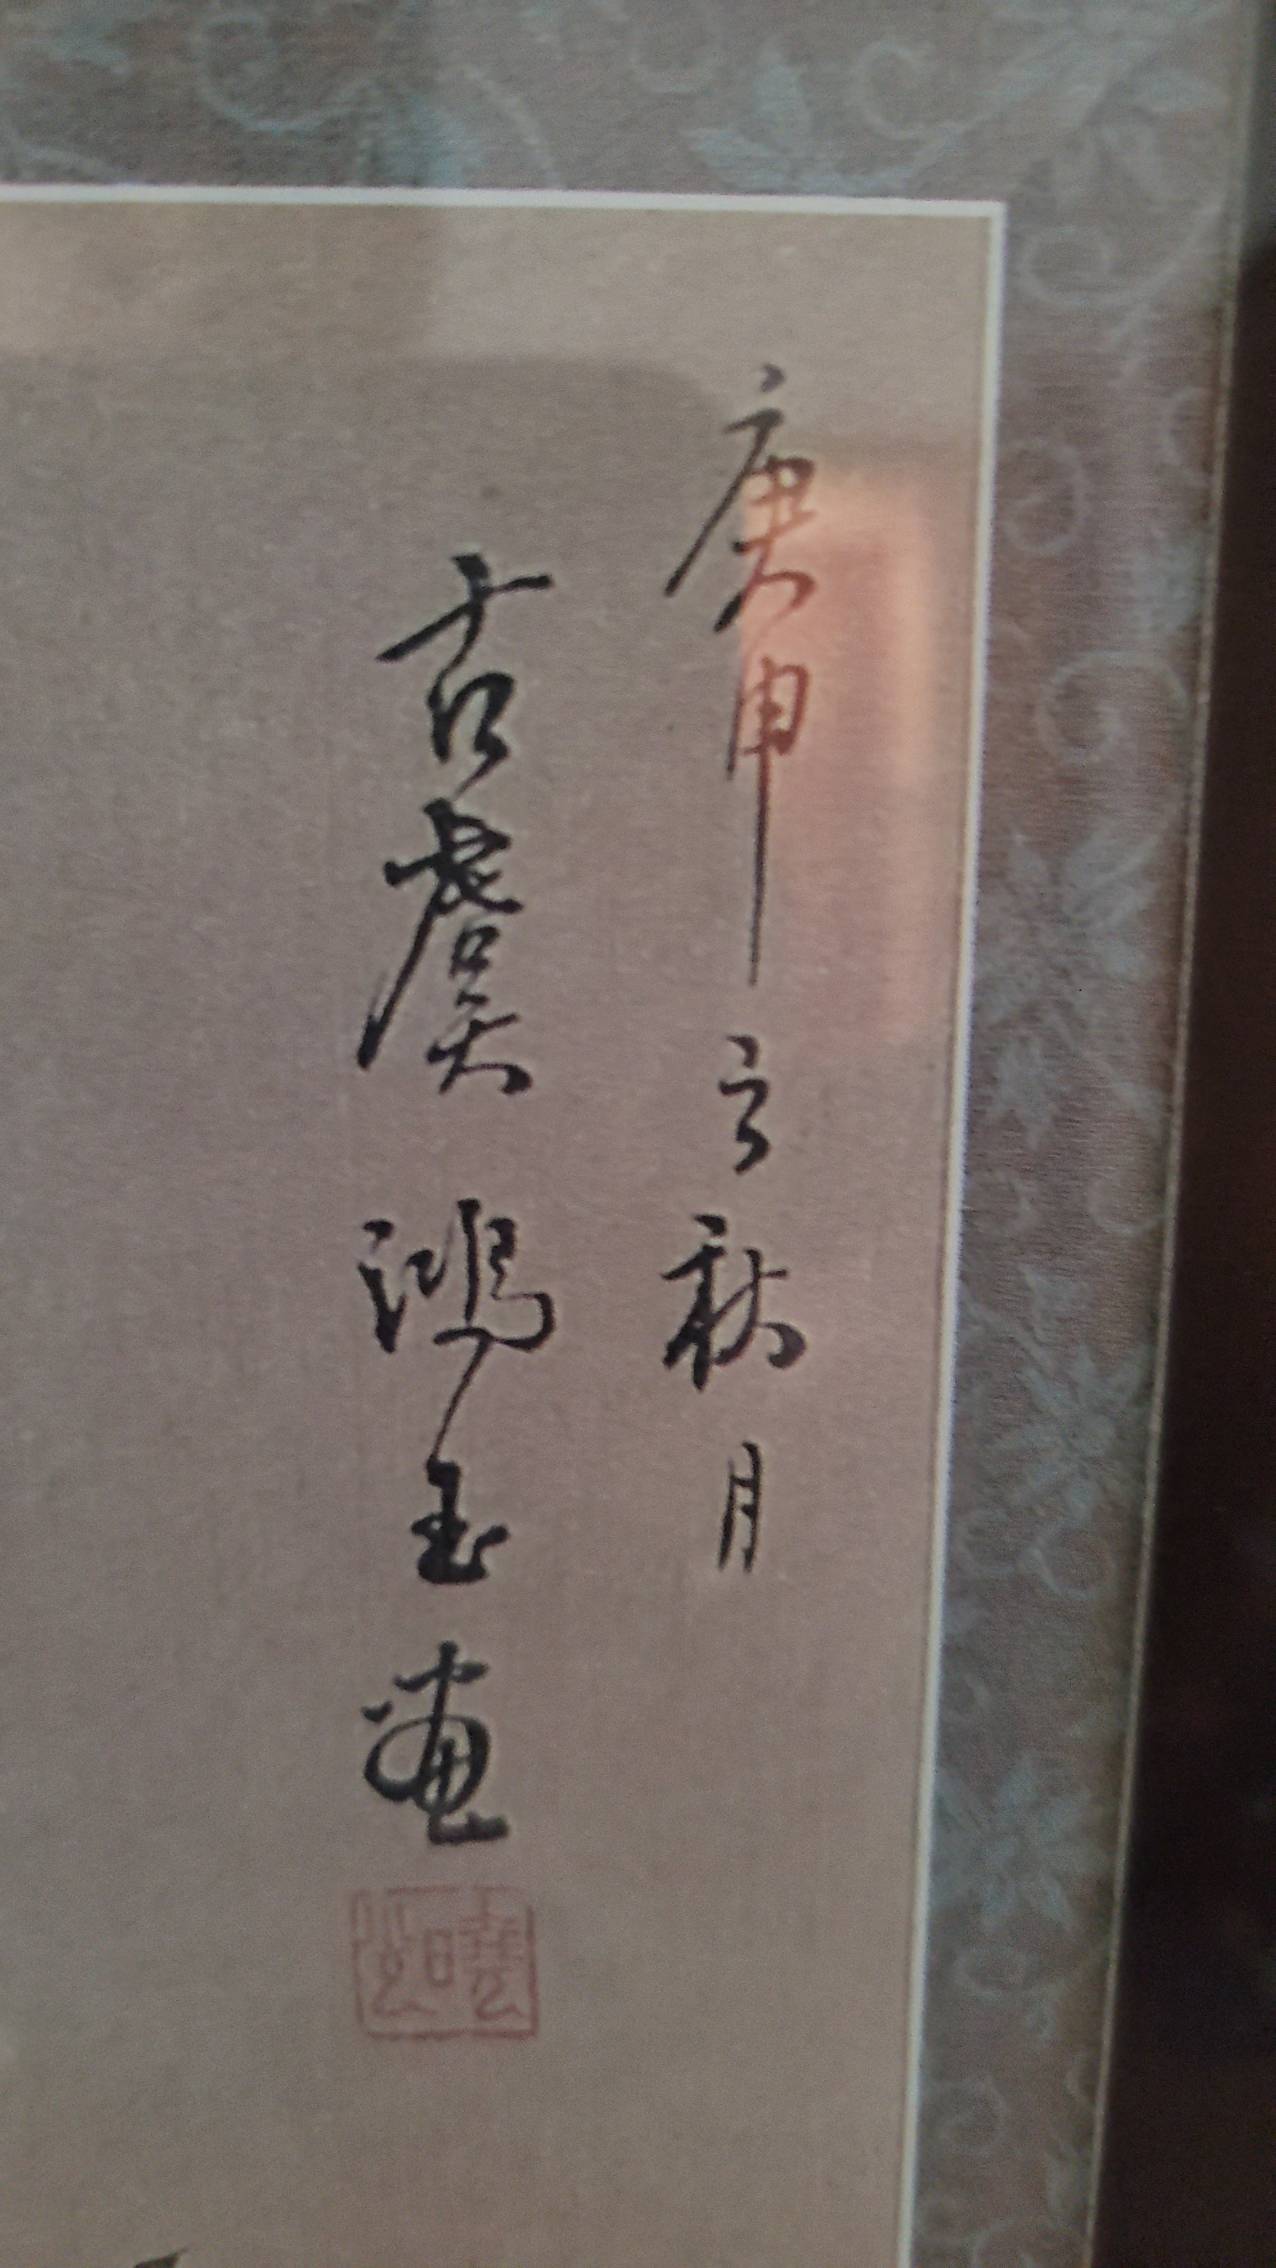 庚申之秋月
古虞鴻玉画